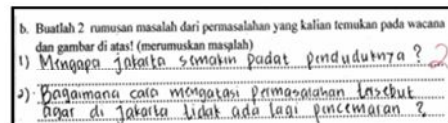 b. Buatlah 2 rumusan masalah dari permasalahan yang kalian temukan pada wacana
dan gambar di atas! (merumuskan masalah)
1) Mengapa jakarta semakin padat penduduknya ? 2
2) Bagaimana cara mengatasi permasalahan tersebut
agar di Jakarta tidak ada lagi pencemaran ?